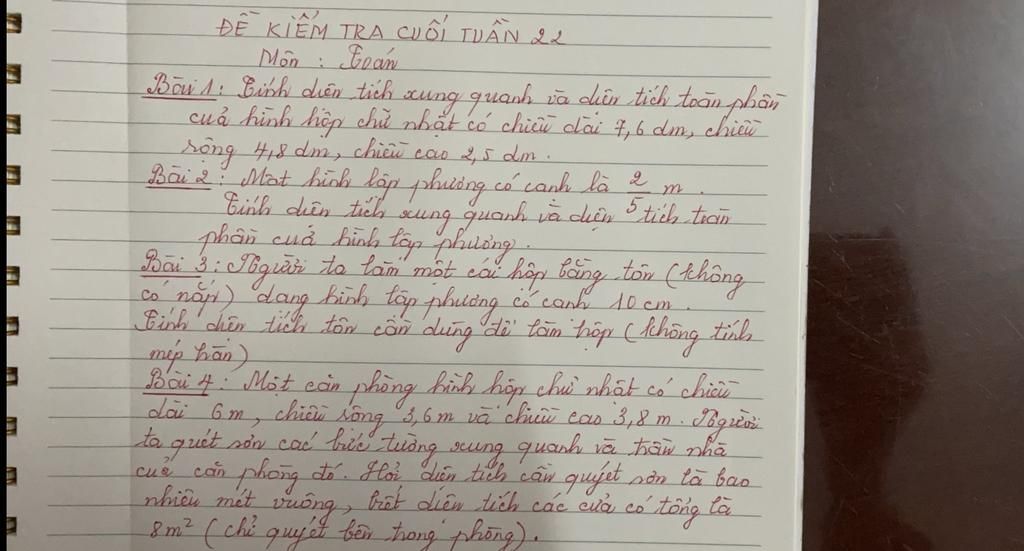 ĐỀ KIỂM TRA CUỐI TUẦN 22
Môn : Toán
Bài 1 : Tính diện tích xung quanh và diện tích toàn phần
của hình hộp chữ nhật có chiều dài 7,6 dm, chiều
rộng 4,8 dm, chiều cao 2,5 dm.
Bài 2 : Một hình lập phương có cạnh là 2/5 m.
Tính diện tích xung quanh và diện tích toàn
phần của hình lập phương.
Bài 3 : Người ta làm một cái hộp bằng tôn (không
có nắp) dạng hình lập phương có cạnh 10 cm.
Tính diện tích tôn cần dùng để làm hộp (không tính
mép hàn)
Bài 4 : Một căn phòng hình hộp chữ nhật có chiều
dài 6 m, chiều rộng 3,6 m và chiều cao 3,8 m. Người
ta quét sơn các bức tường xung quanh và trần nhà
của căn phòng đó. Hỏi diện tích cần quyét sơn là bao
nhiêu mét vuông, biết diện tích các cửa có tổng là
8 m² (chỉ quyét bên trong phòng).